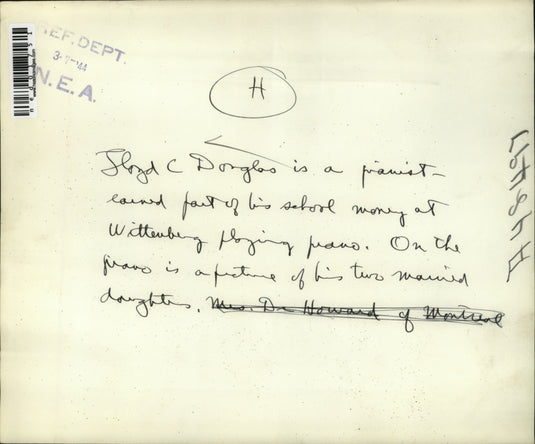 REF. DEPT.
N.E.A.
H
Lloyd C Douglas is a pianist-
earned part of his school money at
Wittenberg playing piano. On the
piano is a picture of his two married
daughters. Mrs. De Howard of Montreal